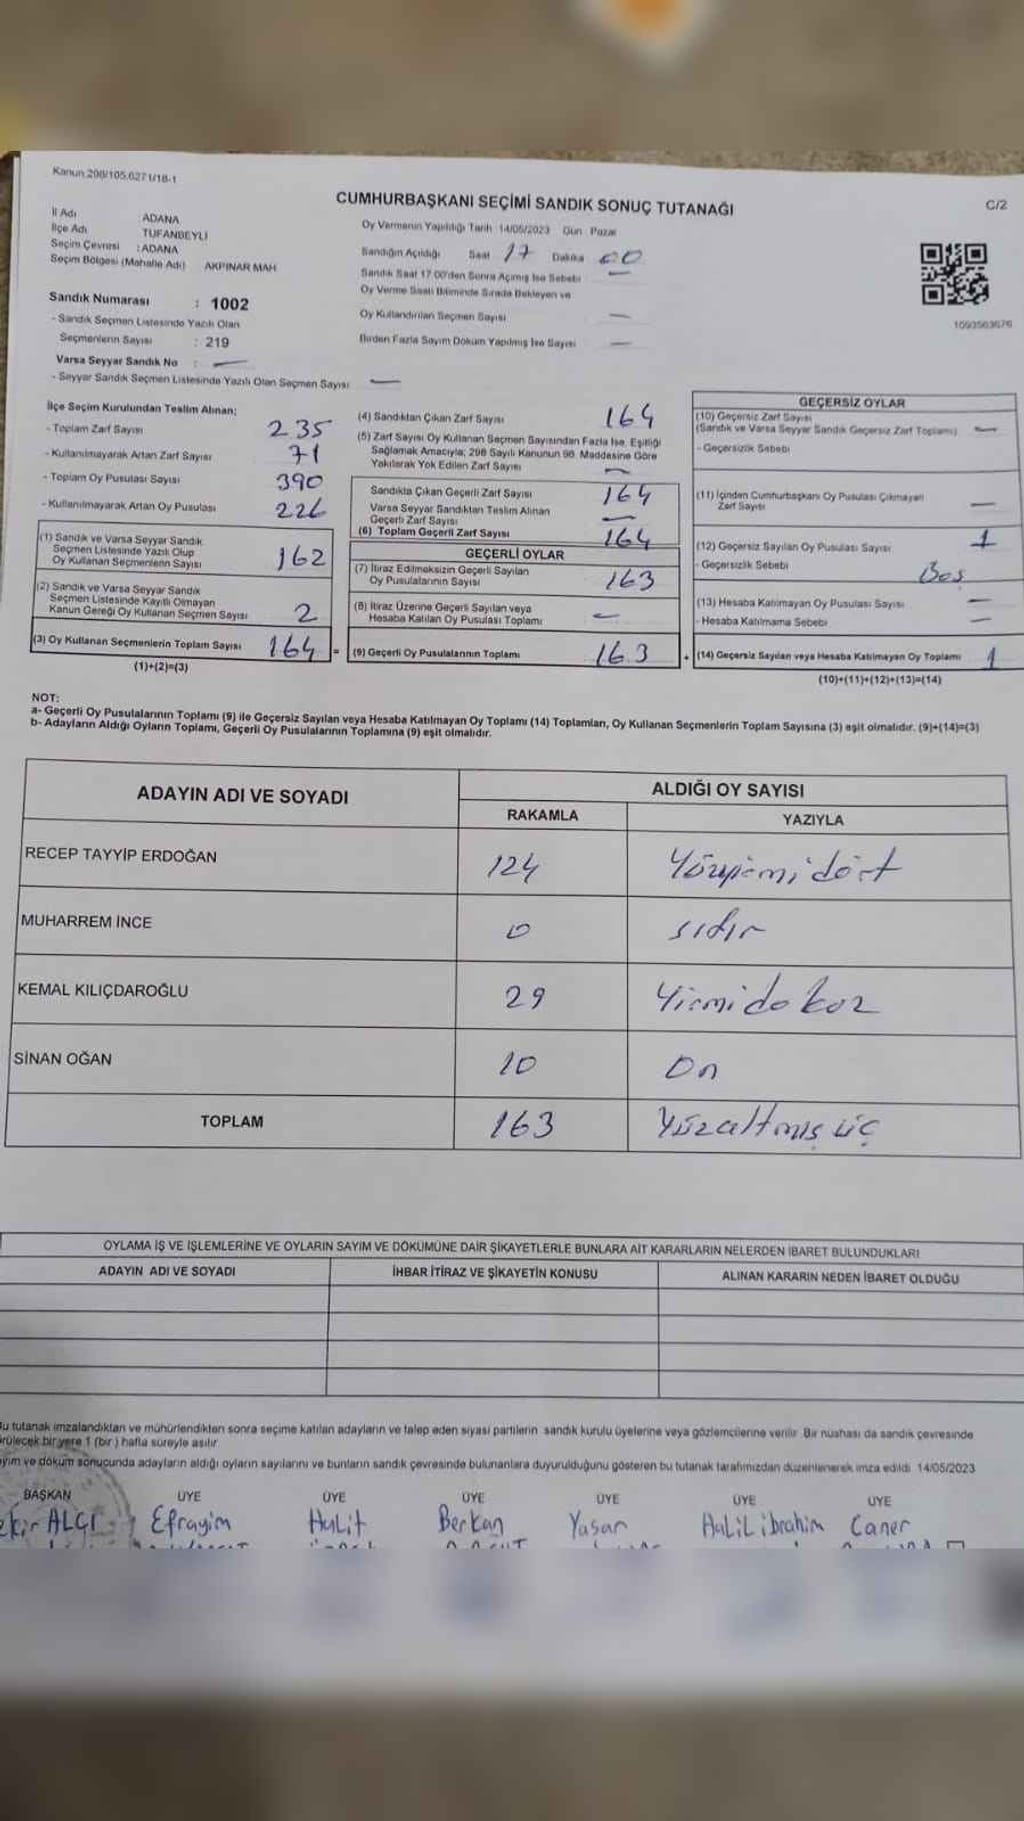 Kanun 298/105,6271/18-1
CUMHURBAŞKANI SEÇİMİ SANDIK SONUÇ TUTANAĞI
C/2
İl Adı ADANA
İlçe Adı TUFANBEYLİ
Seçim Çevresi : ADANA
Seçim Bölgesi (Mahalle Adı) AKPINAR MAH
Sandık Numarası : 1002
- Sandık Seçmen Listesinde Yazılı Olan
Seçmenlerin Sayısı : 219
Varsa Seyyar Sandık No : —
- Seyyar Sandık Seçmen Listesinde Yazılı Olan Seçmen Sayısı —
Oy Vermenin Yapıldığı Tarih 14/05/2023 Gün : Pazar
Sandığın Açıldığı Saat 17 Dakika 00
Sandık Saat 17.00'den Sonra Açımış İse Sebebi —
Oy Verme Saati Bitiminde Sırada Bekleyen ve
Oy Kullandırılan Seçmen Sayısı —
Birden Fazla Sayım Döküm Yapılmış İse Sayısı —
1093563676
İlçe Seçim Kurulundan Teslim Alınan;
- Toplam Zarf Sayısı 235
- Kullanılmayarak Artan Zarf Sayısı 71
- Toplam Oy Pusulası Sayısı 390
- Kullanılmayarak Artan Oy Pusulası 226
(1) Sandık ve Varsa Seyyar Sandık
Seçmen Listesinde Yazılı Olup
Oy Kullanan Seçmenlerin Sayısı 162
(2) Sandık ve Varsa Seyyar Sandık
Seçmen Listesinde Kayıtlı Olmayan
Kanun Gereği Oy Kullanan Seçmen Sayısı 2
(3) Oy Kullanan Seçmenlerin Toplam Sayısı 164 =
(1)+(2)=(3)
(4) Sandıktan Çıkan Zarf Sayısı 164
(5) Zarf Sayısı Oy Kullanan Seçmen Sayısından Fazla İse, Eşitliği
Sağlamak Amacıyla; 298 Sayılı Kanunun 98. Maddesine Göre
Yakılarak Yok Edilen Zarf Sayısı —
Sandıkta Çıkan Geçerli Zarf Sayısı 164
Varsa Seyyar Sandıktan Teslim Alınan
Geçerli Zarf Sayısı —
(6) Toplam Geçerli Zarf Sayısı 164
GEÇERLİ OYLAR
(7) İtiraz Edilmeksizin Geçerli Sayılan
Oy Pusulalarının Sayısı 163
(8) İtiraz Üzerine Geçerli Sayılan veya
Hesaba Katılan Oy Pusulası Toplamı —
(9) Geçerli Oy Pusulalarının Toplamı 163 +
GEÇERSİZ OYLAR
(10) Geçersiz Zarf Sayısı
(Sandık ve Varsa Seyyar Sandık Geçersiz Zarf Toplamı) —
- Geçersizlik Sebebi
(11) İçinden Cumhurbaşkanı Oy Pusulası Çıkmayan
Zarf Sayısı —
(12) Geçersiz Sayılan Oy Pusulası Sayısı 1
- Geçersizlik Sebebi Boş
(13) Hesaba Katılmayan Oy Pusulası Sayısı —
- Hesaba Katılmama Sebebi —
(14) Geçersiz Sayılan veya Hesaba Katılmayan Oy Toplamı 1
(10)+(11)+(12)+(13)=(14)
NOT:
a- Geçerli Oy Pusulalarının Toplamı (9) ile Geçersiz Sayılan veya Hesaba Katılmayan Oy Toplamı (14) Toplamları, Oy Kullanan Seçmenlerin Toplam Sayısına (3) eşit olmalıdır. (9)+(14)=(3)
b- Adayların Aldığı Oyların Toplamı, Geçerli Oy Pusulalarının Toplamına (9) eşit olmalıdır.
ADAYIN ADI VE SOYADI ALDIĞI OY SAYISI
RAKAMLA YAZIYLA
RECEP TAYYİP ERDOĞAN 124 Yüzyirmidört
MUHARREM İNCE 0 sıfır
KEMAL KILIÇDAROĞLU 29 Yirmidokuz
SİNAN OĞAN 10 On
TOPLAM 163 Yüzaltmış üç
OYLAMA İŞ VE İŞLEMLERİNE VE OYLARIN SAYIM VE DÖKÜMÜNE DAİR ŞİKAYETLERLE BUNLARA AİT KARARLARIN NELERDEN İBARET BULUNDUKLARI
ADAYIN ADI VE SOYADI İHBAR İTİRAZ VE ŞİKAYETİN KONUSU ALINAN KARARIN NEDEN İBARET OLDUĞU
Bu tutanak imzalandıktan ve mühürlendikten sonra seçime katılan adayların ve talep eden siyasi partilerin sandık kurulu üyelerine veya gözlemcilerine verilir. Bir nüshası da sandık çevresinde
görülecek bir yere 1 (bir) hafta süreyle asılır
ayım ve döküm sonucunda adayların aldığı oyların sayılarını ve bunların sandık çevresinde bulunanlara duyurulduğunu gösteren bu tutanak tarafımızdan düzenlenerek imza edildi. 14/05/2023
BAŞKAN ÜYE ÜYE ÜYE ÜYE ÜYE ÜYE
ekir ALÇI Efrayim Halit Berkan Yaşar Halil ibrahim Caner